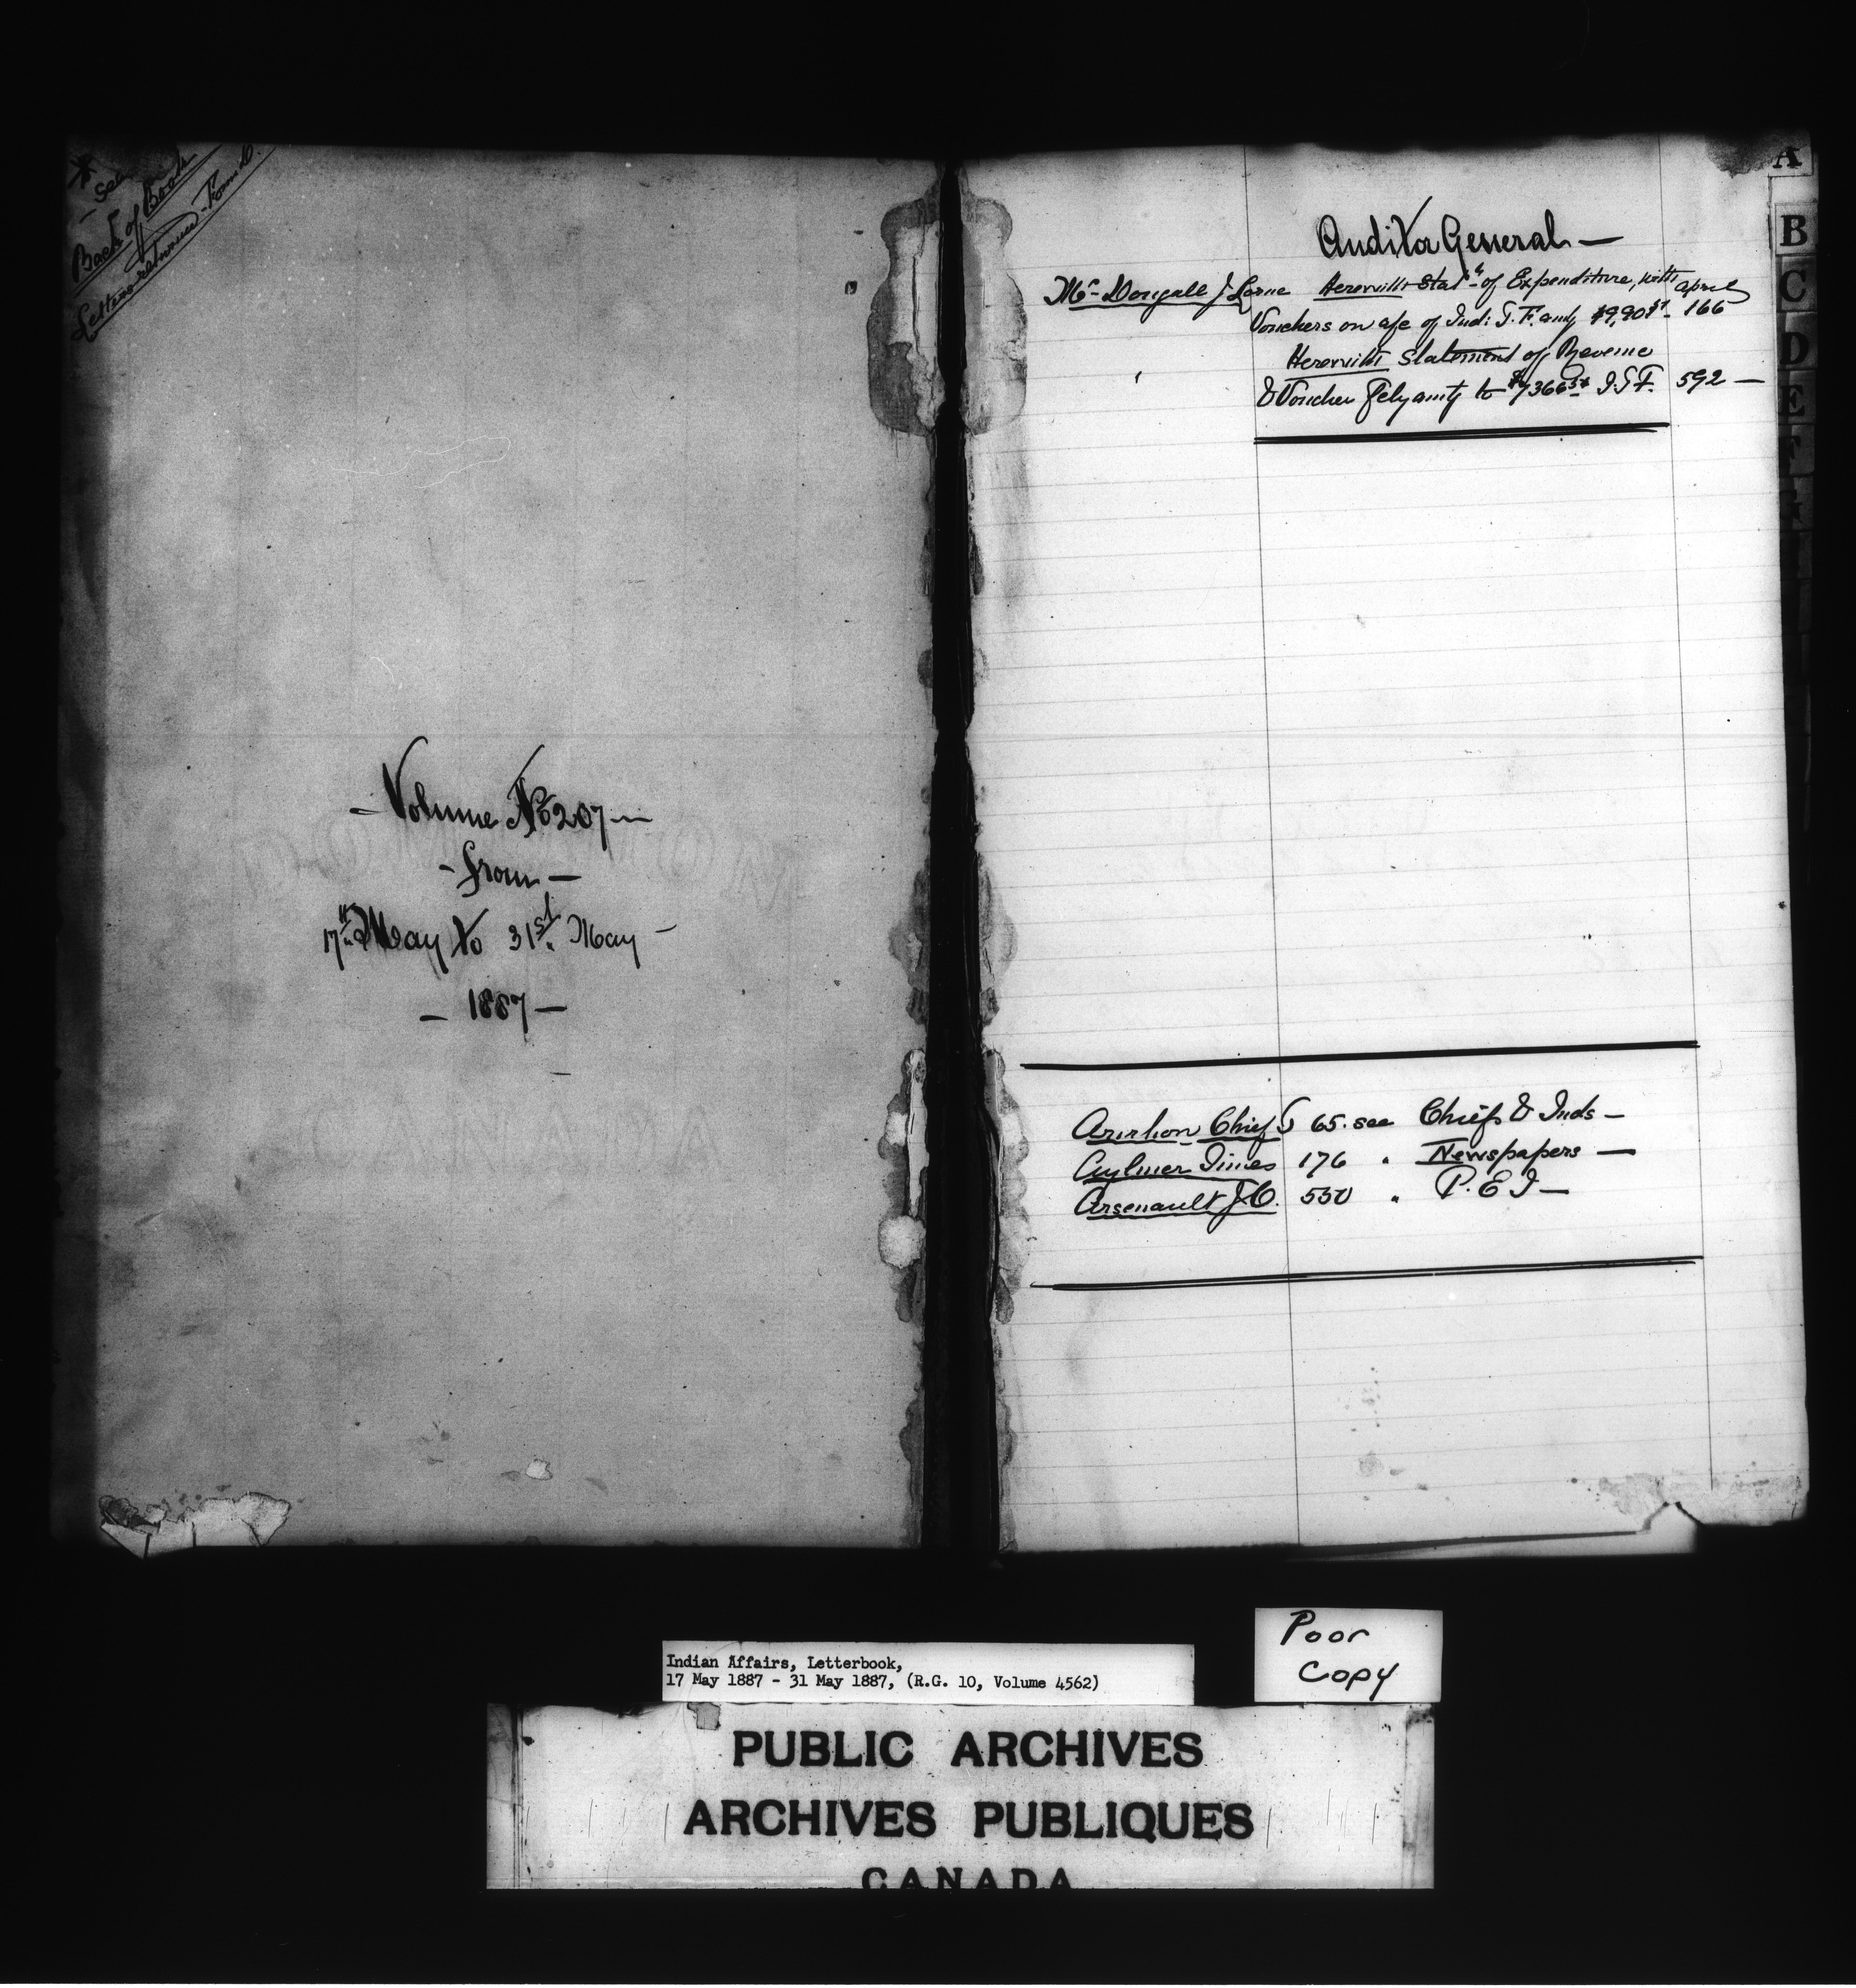 * See
Back of Book
for
Letters returned from D.
- Volume No 207 -
- from -
17th May to 31st May -
- 1887 -
A
B
C
D
E
F
Auditor General -
Mc Dougall J Lorne Herewith Stat. of Expenditure, with April
Vouchers on a/c of Indi: T. F. amtg $9,90 166
Herewith Statement of Revenue
& Voucher amtg to $7366 I.T.F. 592 -
Chief J 65. see Chiefs & Inds -
Aylmer Times 176 " Newspapers -
Arsenault J.O. 550 " P. E I -
Poor
Copy
Indian Affairs, Letterbook,
17 May 1887 - 31 May 1887, (R.G. 10, Volume 4562)
PUBLIC ARCHIVES
ARCHIVES PUBLIQUES
CANADA